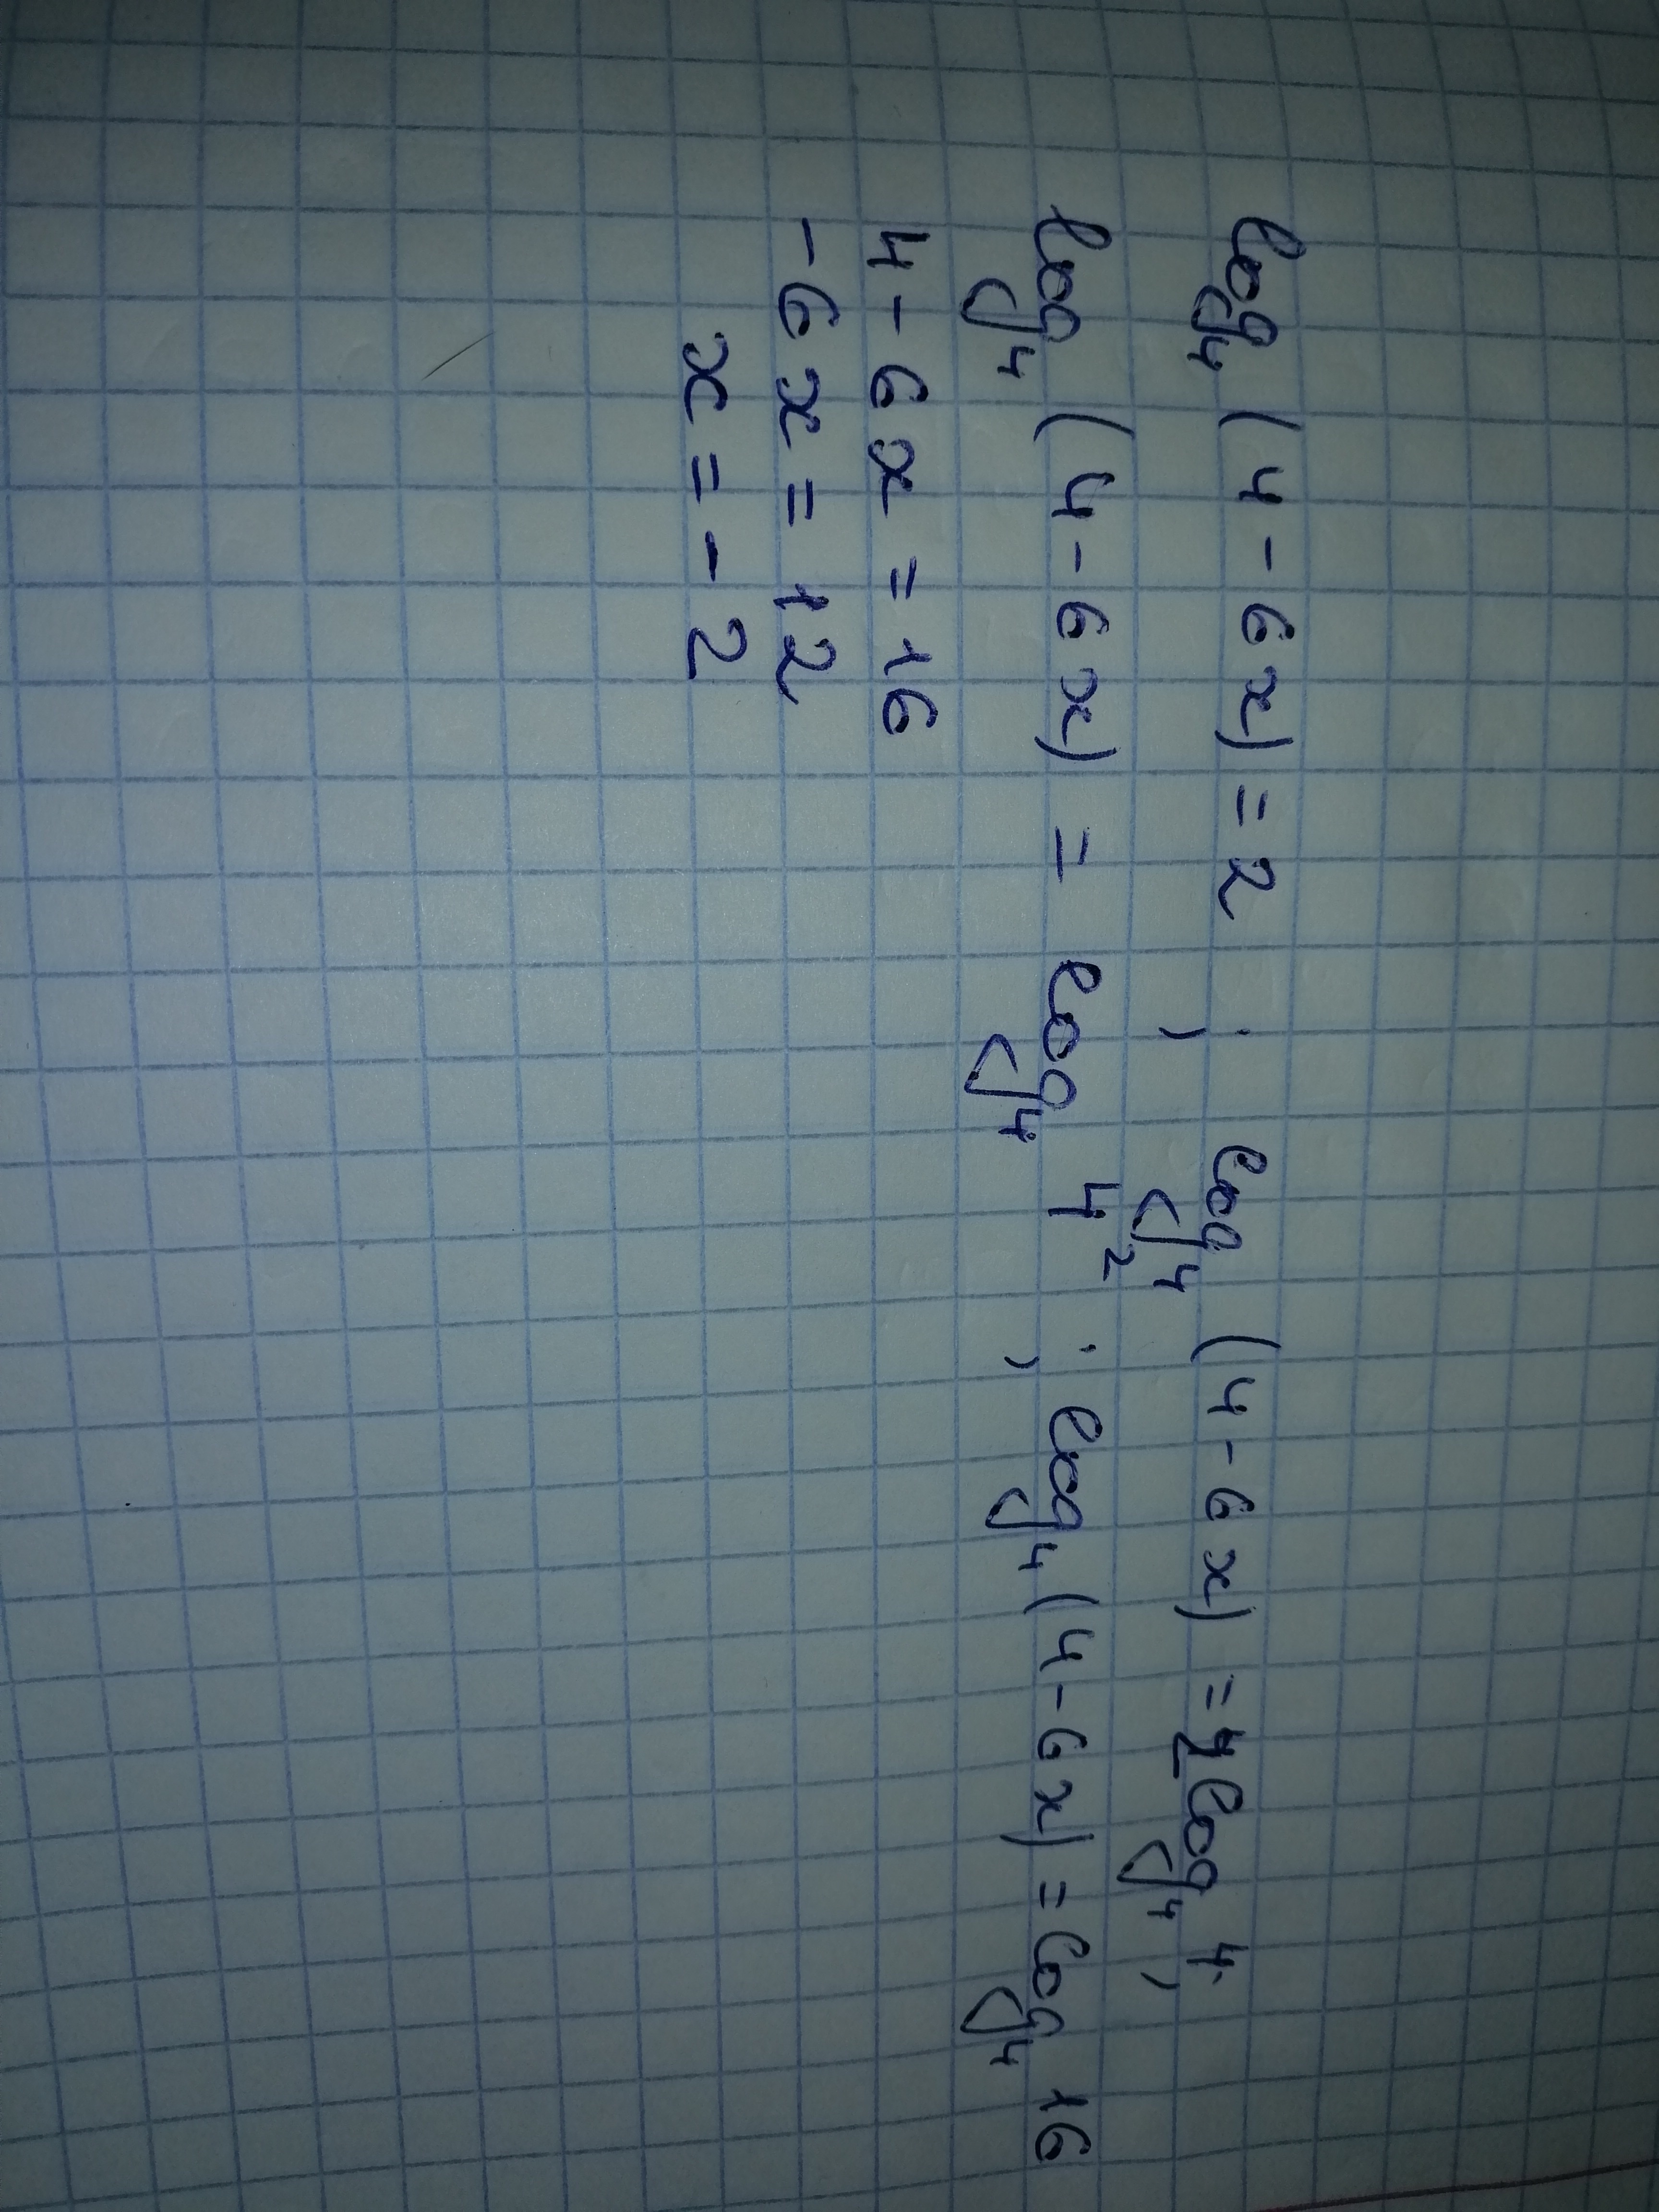 log₄ (4 - 6x) = 2 ; log₄ (4 - 6x) = 2 log₄ 4;
log₄ (4 - 6x) = log₄ 4² ; log₄ (4 - 6x) = log₄ 16
4 - 6x = 16
-6x = 12
x = -2